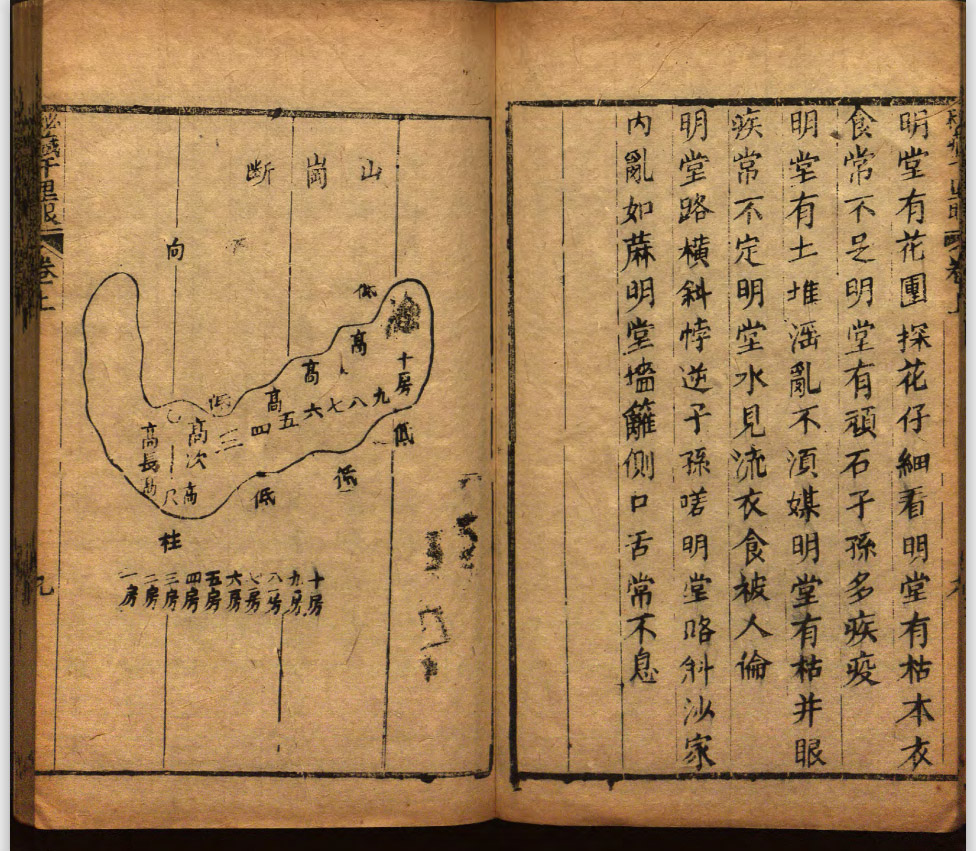 明堂有花園探花仔細看明堂有枯木衣
食常不足明堂有頑石子孫多疾疫
明堂有土堆滛亂不湏媒明堂有枯井眼
疾常不定明堂水見流衣食被人倫
明堂路横斜悖逆子孫嗟明堂路斜沙家
内亂如蔴明堂墻籬側口舌常不息
卷上
断崗山
向
低
高
十房
高
九
八
七
六
高
五
四
三
低
高次
高長
高
低
低
低
柱
十房
九房
八房
七房
六房
五房
四房
三房
二房
一房
千里眼
卷上
九